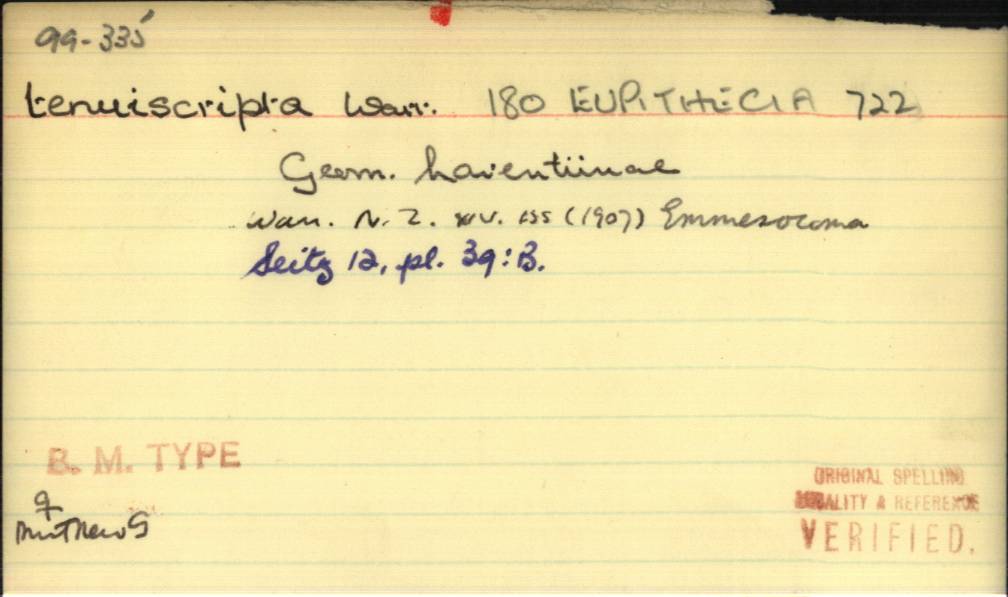 99-335
tenuiscripta Warr. 180 EUPITHECIA 722
Geom. Larentiinae
Warr. N. Z. XIV. 155 (1907) Emmesocoma
Seitz 12, pl. 39:B.
B. M. TYPE
♀
ORIGINAL SPELLING
LOCALITY & REFERENCE
VERIFIED.